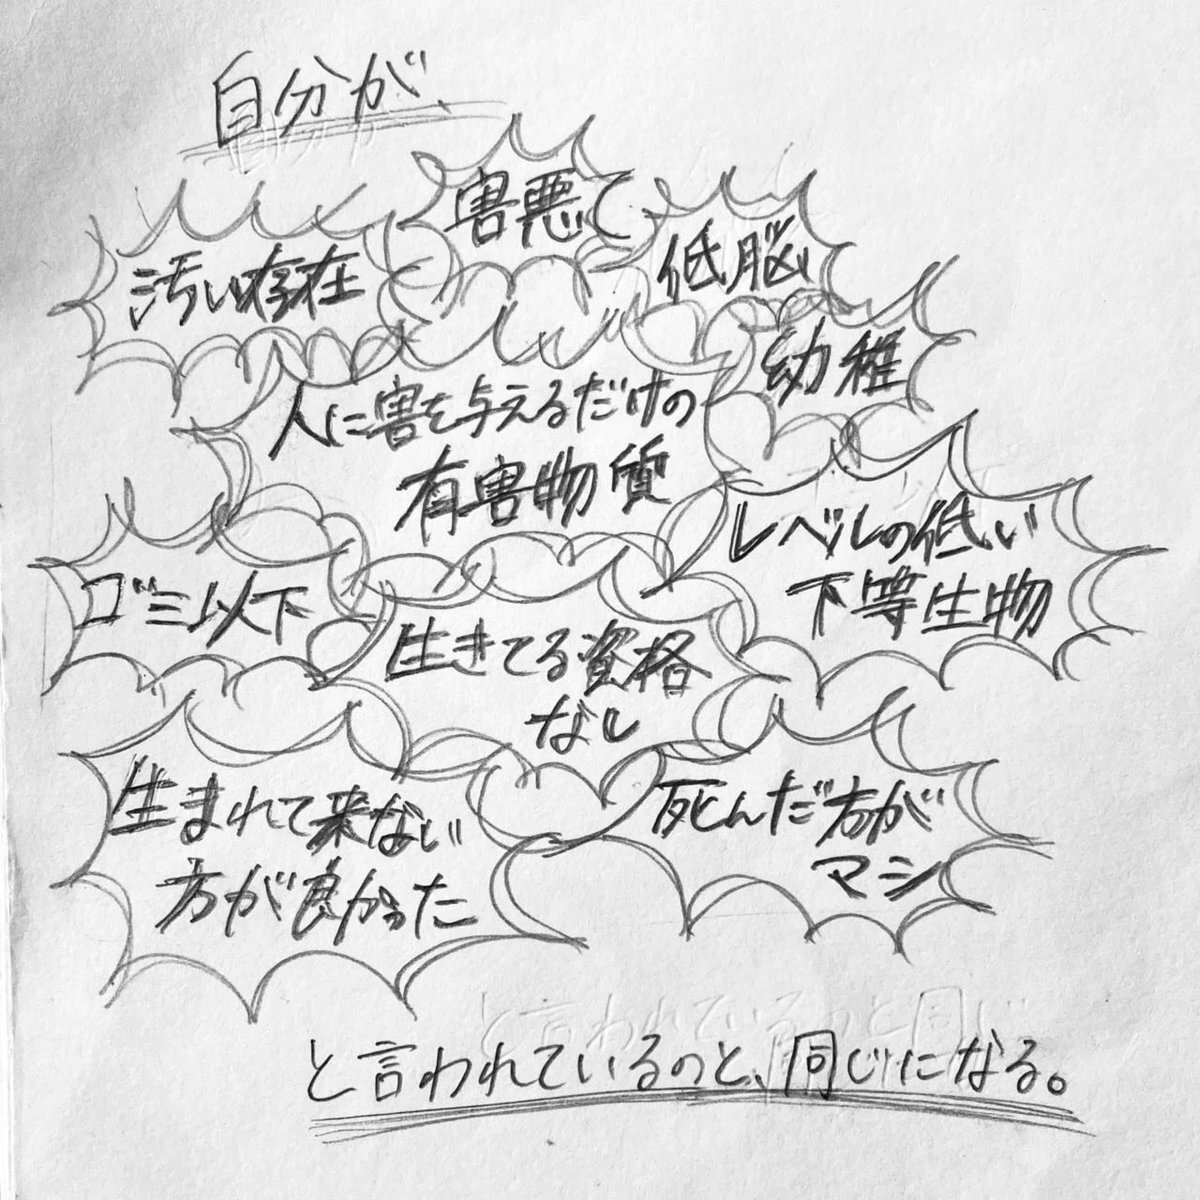 自分が
害悪
汚い存在
低脳
幼稚
人に害を与えるだけの
有害物質
レベルの低い
下等生物
ゴミ以下
生きてる資格
なし
生まれて来ない
方が良かった
死んだ方が
マシ
と言われているのと、同じになる。